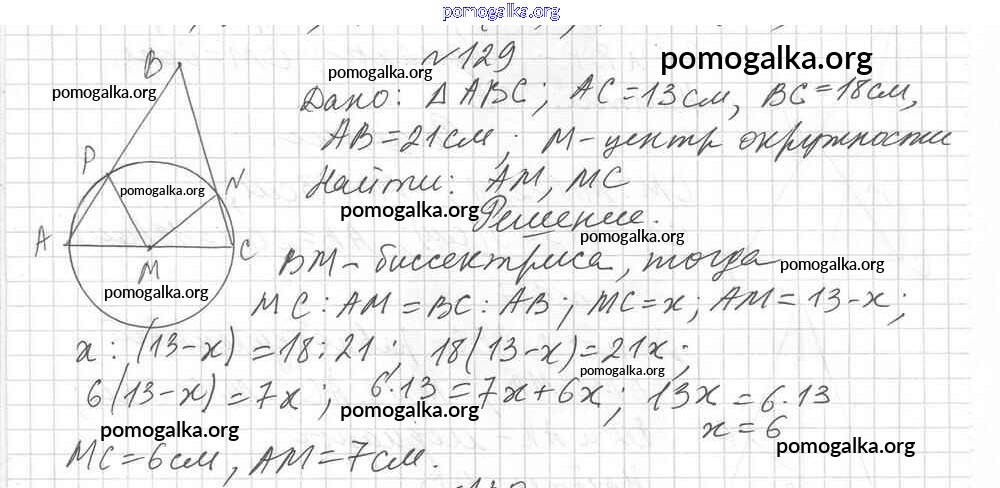 pomogalka.org
№129
pomogalka.org
pomogalka.org
B
pomogalka.org
Дано: Δ ABC; AC=13см, BC=18см,
AB=21см; M-центр окружности
P
pomogalka.org
N
Найти: AM, MC
pomogalka.org
Решение.
pomogalka.org
A
C
M
BM-биссектриса, тогда
pomogalka.org
pomogalka.org
MC:AM=BC:AB; MC=x; AM=13-x;
x:(13-x)=18:21; 18(13-x)=21x;
pomogalka.org
6(13-x)=7x; 6·13=7x+6x; 13x=6·13
pomogalka.org
x=6
pomogalka.org
pomogalka.org
MC=6см, AM=7см.